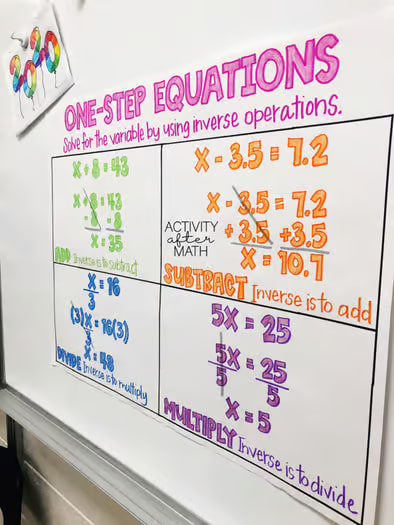 2020
ONE-STEP EQUATIONS
Solve for the variable by using inverse operations.
X + 8 = 43
X + 8 = 43
- 8 - 8
X = 35
ADD Inverse is to subtract
X - 3.5 = 7.2
X - 3.5 = 7.2
+ 3.5 +3.5
X = 10.7
SUBTRACT Inverse is to add
ACTIVITY
after
MATH
X = 16
3
(3)X = 16(3)
3
X = 48
DIVIDE Inverse is to multiply
5X = 25
5X = 25
5 5
X = 5
MULTIPLY Inverse is to divide